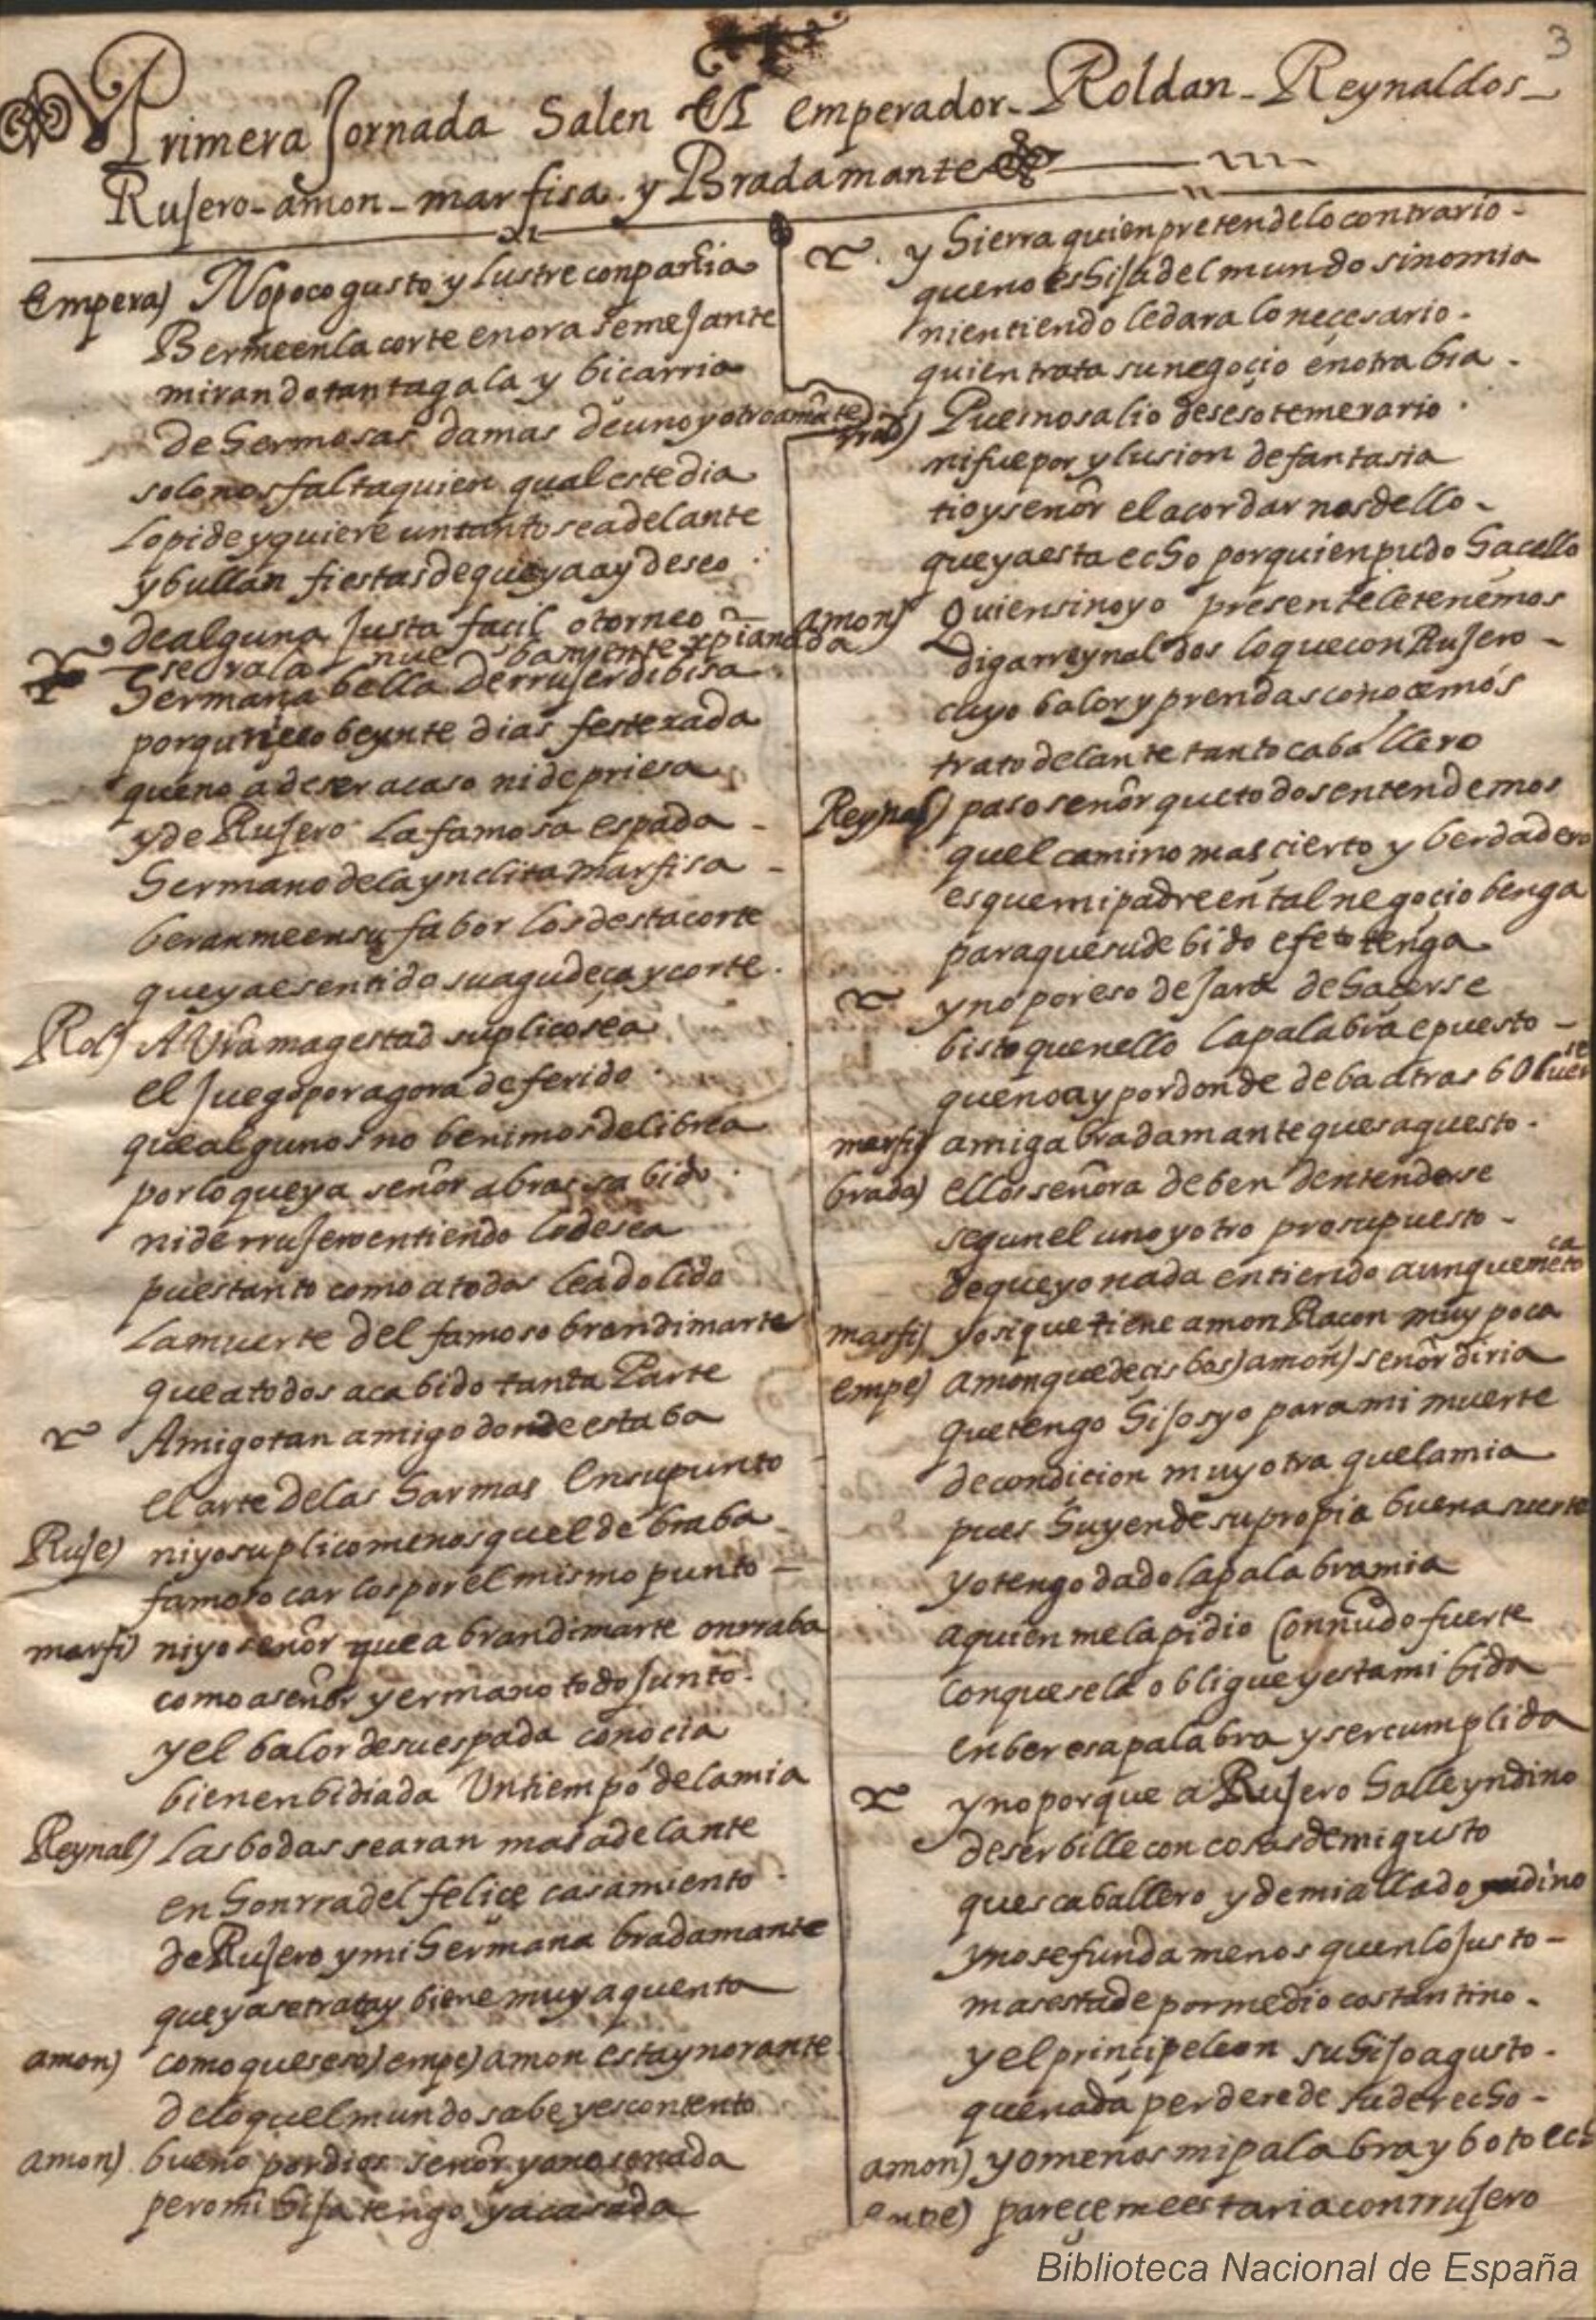 3
Primera Jornada Salen El emperador - Roldan - Reynaldos -
Rujero - amon - marfisa. y Bradamante
Empera) No poco gusto y lustre conpañia
Berme en la corte en ora semejante
mirando tanta gala y biçarria
de hermosas damas de uno y otro amãte
solo nos falta quien qual este dia
lo pide y quiere un tanto se adelante
y bullan fiestas de que ya ay deseo
de alguna Justa facil o torneo
hermana bella de rrujer dibisa
porque beynte dias festexada
que no a de ser acaso ni de priesa
y de Rujero la famosa espada -
hermano de la ynclita marfisa -
beranme en su fabor los desta corte
que ya e sentido su agudeça y corte.
Rol) A Vrã magestad suplico sea
el Juego por agora deferido
que algunos no benimos de librea
por lo que ya señor abras sabido
ni de rrujero entiendo lo desea
pues tanto como a todos le a dolido
la muerte del famoso brandimarte
que a todos a cabido tanta Parte
Amigo tan amigo donde estaba
el arte de las harmas en su punto
Ruje) ni yo suplico menos quel de braba
famoso carlos por el mismo punto -
marfi) ni yo señor que a brandimarte onrraba
como a señor y ermano todo Junto.
y el balor de su espada conocia
bien enbidiada Un tiempo de la mia
Reynal) las bodas searan mas adelante
en honrra del feliçe casamiento
de Rujero y mi hermana bradamante
que ya se trata y biene muy a quento
amon) como ques eso) empe) amon esta ynorante
de lo quel mundo sabe y es contento
amon) bueno por dios señor yo no se nada
pero mi hija tengo ya casada
y hierra quien pretende lo contrario -
que no es hija del mundo sino mia
ni entiendo le dara lo neçesario -
quien trata su negoçio en otra bia -
Pues no salio de seso temerario
ni fue por ylusion de fantasia
tio y señor el acordarnos dello -
que ya esta echo por quien pudo haçello
amon) Quien sino yo presente le tenemos
diga rreynaldos lo que con Rujero -
cuyo balor y prendas conoçemos
trato delante tanto caballero
Reynal) paso señor que todos entendemos
quel camino mas çierto y berdadero
es que mi padre en tal negoçio benga
para que su debido efeto tenga
y no por eso dejara de haçerse
bisto quen ello la palabra e puesto -
que no ay por donde deba atras boluerse
marfi) amiga bradamante ques aquesto -
brada) ellos señora deben dentenderse
segun el uno y otro prosupuesto -
de que yo nada entiendo aunque me toca
marfi) yo si que tiene amon Raçon muy poca
empe) amon que deçis bos) amon) señor diria
que tengo hijos yo para mi muerte
de condicion muy otra que la mia
pues huyen de su propia buena suerte
yo tengo dado la palabra mia
a quien me la pidio Con ñudo fuerte
con que se la obligue y esta mi bida
en ber esa palabra y ser cumplida
y no porque a Rujero halle yndino
de serbille con cosas de mi gusto
ques caballero y de mi allado
y no se funda menos quen lo Justo -
mas esta de por medio costantino -
y el principe leon su hijo agusto -
que nada perdere de su derecho -
amon) yo menos mi palabra y boto
empe) pareçeme estaria con rrujero
Biblioteca Nacional de España